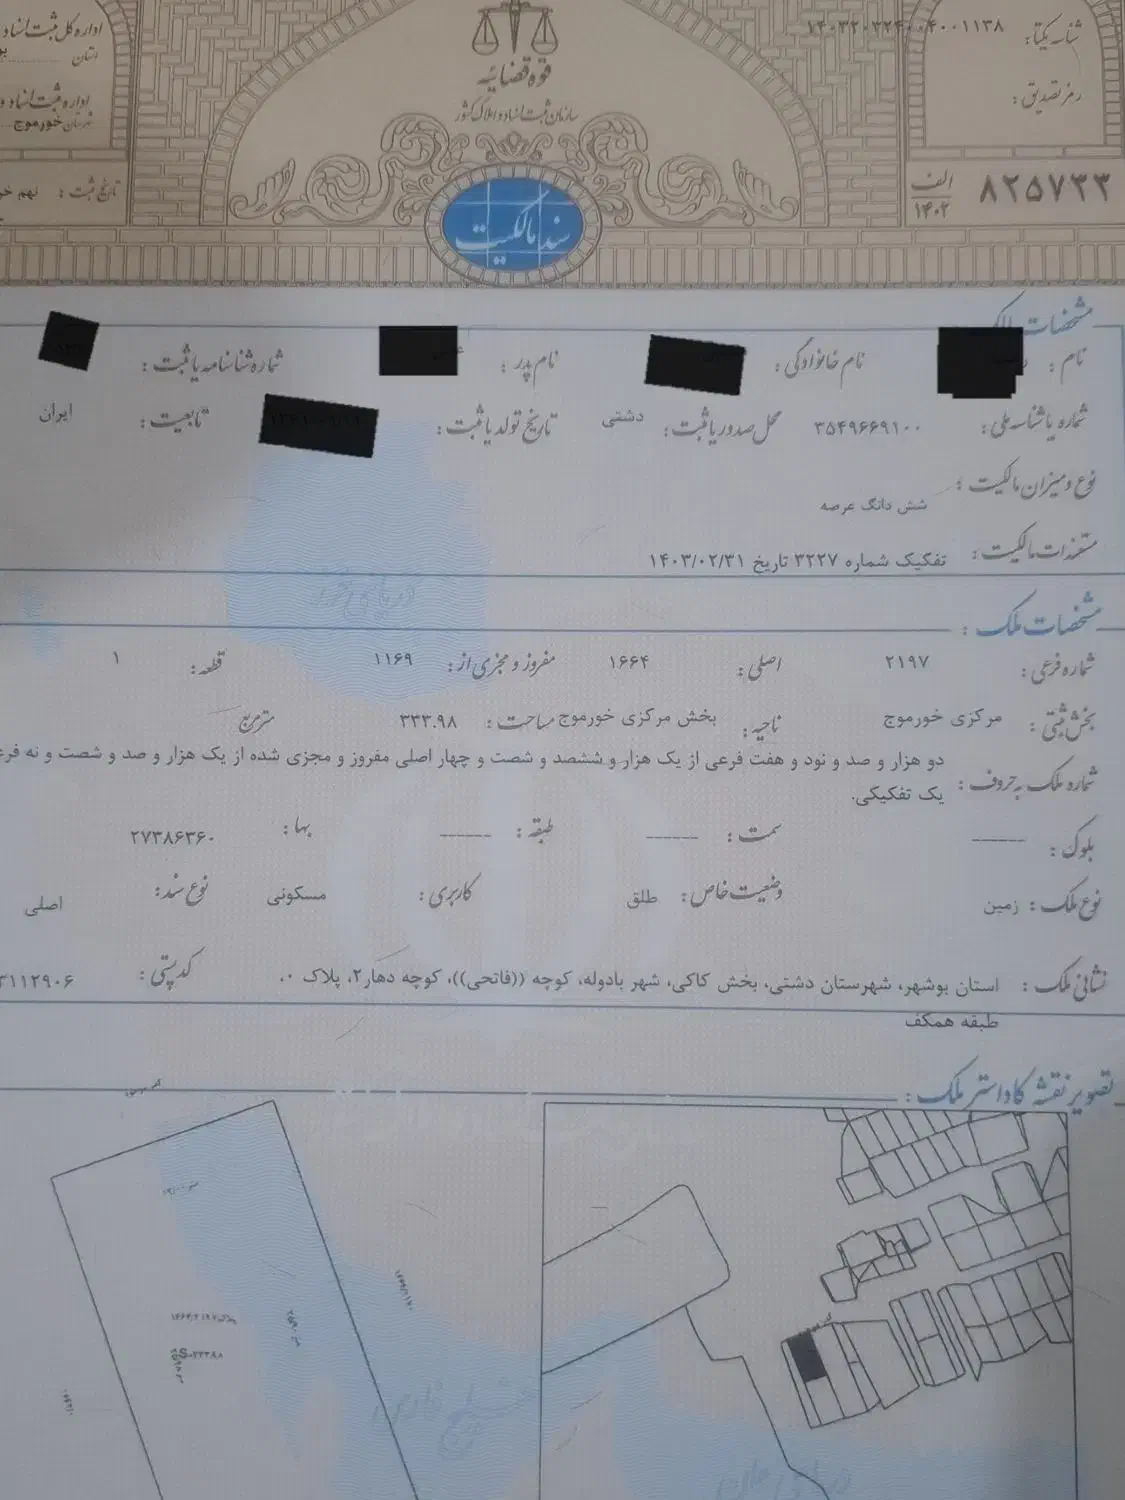 شناسه یکتا: ۱۴۰۳۲۰۳۲۴۰۰۴۰۰۱۱۳۸
رمز تصدیق:
الف ۱۴۰۲ ۸۲۵۷۳۳
قوه قضائیه
سازمان ثبت اسناد و املاک کشور
سند مالکیت
اداره کل ثبت اسناد
استان
اداره ثبت اسناد و
شهرستان خورموج
تاریخ ثبت: نهم
مشخصات مالک
نام: نام خانوادگی: نام پدر: شماره شناسنامه یا ثبت:
شماره یا شناسه ملی: ۳۵۴۹۶۶۹۱۰۰ محل صدور یا ثبت: دشتی تاریخ تولد یا ثبت: تابعیت: ایران
نوع و میزان مالکیت: شش دانگ عرصه
مستندات مالکیت: تفکیک شماره ۳۲۲۷ تاریخ ۱۴۰۳/۰۲/۳۱
مشخصات ملک:
شماره فرعی: ۲۱۹۷ اصلی: ۱۶۶۴ مفروز و مجزی از: ۱۱۶۹ قطعه: ۱
بخش ثبتی: مرکزی خورموج ناحیه: بخش مرکزی خورموج مساحت: ۳۳۳.۹۸ مترمربع
شماره ملک به حروف: دو هزار و صد و نود و هفت فرعی از یک هزار و ششصد و شصت و چهار اصلی مفروز و مجزی شده از یک هزار و صد و شصت و نه فرع
یک تفکیکی.
بلوک: ------ سمت: ------ طبقه: ------ بها: ۲۷۳۸۶۳۶۰
نوع ملک: زمین وضعیت خاص: طلق کاربری: مسکونی نوع سند: اصلی
نشانی ملک: استان بوشهر، شهرستان دشتی، بخش کاکی، شهر بادوله، کوچه ((فاتحی))، کوچه دهار۲، پلاک ۰، کدپستی: ۳۱۱۲۹۰۶
طبقه همکف
تصویر نقشه کاداستر ملک:
S=۳۳۳.۹۸